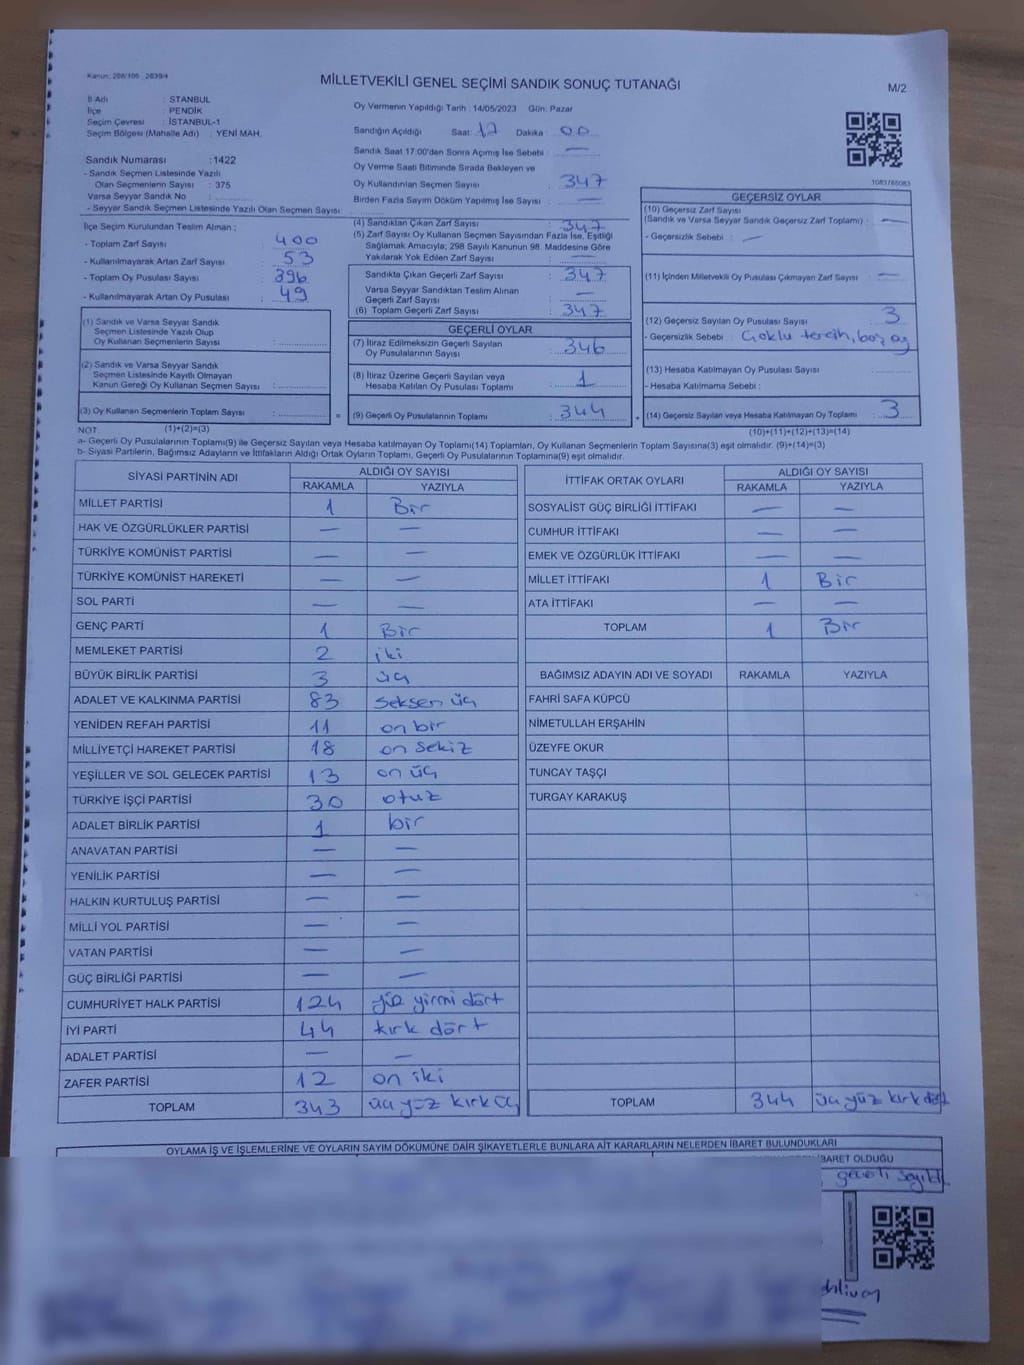 Kanun: 298/105 2839/4
MİLLETVEKİLİ GENEL SEÇİMİ SANDIK SONUÇ TUTANAĞI
M/2
İl Adı : STANBUL
İlçe : PENDİK
Seçim Çevresi : İSTANBUL-1
Seçim Bölgesi (Mahalle Adı) : YENİ MAH.
Oy Vermenin Yapıldığı Tarih : 14/05/2023 Gün: Pazar
Sandığın Açıldığı Saat: 17 Dakika : 00
Sandık Saat 17:00'den Sonra Açımış İse Sebebi : —
Oy Verme Saati Bitiminde Sırada Bekleyen ve
Oy Kullandırılan Seçmen Sayısı : 347
Birden Fazla Sayım Döküm Yapılmış İse Sayısı : —
Sandık Numarası : 1422
- Sandık Seçmen Listesinde Yazılı
Olan Seçmenlerin Sayısı : 375
Varsa Seyyar Sandık No :
- Seyyar Sandık Seçmen Listesinde Yazılı Olan Seçmen Sayısı:
İlçe Seçim Kurulundan Teslim Alınan ;
- Toplam Zarf Sayısı : 400
- Kullanılmayarak Artan Zarf Sayısı : 53
- Toplam Oy Pusulası Sayısı : 396
- Kullanılmayarak Artan Oy Pusulası : 49
(1) Sandık ve Varsa Seyyar Sandık
Seçmen Listesinde Yazılı Olup
Oy Kullanan Seçmenlerin Sayısı :
(2) Sandık ve Varsa Seyyar Sandık
Seçmen Listesinde Kayıtlı Olmayan
Kanun Gereği Oy Kullanan Seçmen Sayısı :
(3) Oy Kullanan Seçmenlerin Toplam Sayısı : =
(4) Sandıktan Çıkan Zarf Sayısı : 347
(5) Zarf Sayısı Oy Kullanan Seçmen Sayısından Fazla İse, Eşitliği
Sağlamak Amacıyla; 298 Sayılı Kanunun 98. Maddesine Göre
Yakılarak Yok Edilen Zarf Sayısı : —
Sandıkta Çıkan Geçerli Zarf Sayısı : 347
Varsa Seyyar Sandıktan Teslim Alınan
Geçerli Zarf Sayısı : —
(6) Toplam Geçerli Zarf Sayısı : 347
GEÇERLİ OYLAR
(7) İtiraz Edilmeksizin Geçerli Sayılan
Oy Pusulalarının Sayısı : 346
(8) İtiraz Üzerine Geçerli Sayılan veya
Hesaba Katılan Oy Pusulası Toplamı : 1
(9) Geçerli Oy Pusulalarının Toplamı : 344 +
1083785083
GEÇERSİZ OYLAR
(10) Geçersiz Zarf Sayısı
(Sandık ve Varsa Seyyar Sandık Geçersiz Zarf Toplamı) : —
- Geçersizlik Sebebi : —
(11) İçinden Milletvekili Oy Pusulası Çıkmayan Zarf Sayısı : —
(12) Geçersiz Sayılan Oy Pusulası Sayısı : 3
- Geçersizlik Sebebi : Çoklu tercih, boş oy
(13) Hesaba Katılmayan Oy Pusulası Sayısı :
- Hesaba Katılmama Sebebi :
(14) Geçersiz Sayılan veya Hesaba Katılmayan Oy Toplamı : 3
NOT: (1)+(2)=(3)
(10)+(11)+(12)+(13)=(14)
a- Geçerli Oy Pusulalarının Toplamı(9) ile Geçersiz Sayılan veya Hesaba katılmayan Oy Toplamı(14) Toplamları, Oy Kullanan Seçmenlerin Toplam Sayısına(3) eşit olmalıdır. (9)+(14)=(3)
b- Siyasi Partilerin, Bağımsız Adayların ve İttifakların Aldığı Ortak Oyların Toplamı, Geçerli Oy Pusulalarının Toplamına(9) eşit olmalıdır.
SİYASİ PARTİNİN ADI ALDIĞI OY SAYISI
RAKAMLA YAZIYLA
MİLLET PARTİSİ 1 Bir
HAK VE ÖZGÜRLÜKLER PARTİSİ — —
TÜRKİYE KOMÜNİST PARTİSİ — —
TÜRKİYE KOMÜNİST HAREKETİ — —
SOL PARTİ — —
GENÇ PARTİ 1 Bir
MEMLEKET PARTİSİ 2 iki
BÜYÜK BİRLİK PARTİSİ 3 üç
ADALET VE KALKINMA PARTİSİ 83 seksen üç
YENİDEN REFAH PARTİSİ 11 on bir
MİLLİYETÇİ HAREKET PARTİSİ 18 on sekiz
YEŞİLLER VE SOL GELECEK PARTİSİ 13 on üç
TÜRKİYE İŞÇİ PARTİSİ 30 otuz
ADALET BİRLİK PARTİSİ 1 bir
ANAVATAN PARTİSİ — —
YENİLİK PARTİSİ — —
HALKIN KURTULUŞ PARTİSİ — —
MİLLİ YOL PARTİSİ — —
VATAN PARTİSİ — —
GÜÇ BİRLİĞİ PARTİSİ — —
CUMHURİYET HALK PARTİSİ 124 yüz yirmi dört
İYİ PARTİ 44 kırk dört
ADALET PARTİSİ — —
ZAFER PARTİSİ 12 on iki
TOPLAM 343 üç yüz kırk üç
İTTİFAK ORTAK OYLARI ALDIĞI OY SAYISI
RAKAMLA YAZIYLA
SOSYALİST GÜÇ BİRLİĞİ İTTİFAKI — —
CUMHUR İTTİFAKI — —
EMEK VE ÖZGÜRLÜK İTTİFAKI — —
MİLLET İTTİFAKI 1 Bir
ATA İTTİFAKI — —
TOPLAM 1 Bir
BAĞIMSIZ ADAYIN ADI VE SOYADI RAKAMLA YAZIYLA
FAHRİ SAFA KÜPCÜ
NİMETULLAH ERŞAHİN
ÜZEYFE OKUR
TUNCAY TAŞÇI
TURGAY KARAKUŞ
TOPLAM 344 üç yüz kırk dört
OYLAMA İŞ VE İŞLEMLERİNE VE OYLARIN SAYIM DÖKÜMÜNE DAİR ŞİKAYETLERLE BUNLARA AİT KARARLARIN NELERDEN İBARET BULUNDUKLARI
İBARET OLDUĞU
geçerli sayıldı